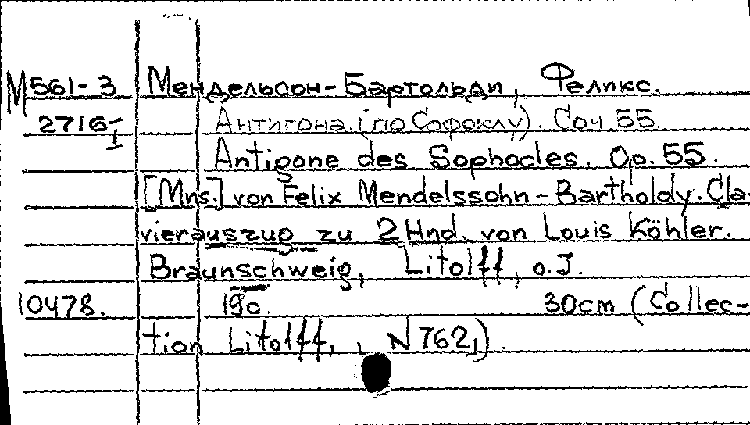 М561-3 Мендельсон-Бартольди, Феликс.
2716-I Антигона. (по Софоклу). Соч. 55
Antigone des Sophocles. Op. 55.
[Mns.] von Felix Mendelssohn-Bartholdy. Cla-
vierauszug zu 2 Hnd. von Louis Köhler.
Braunschweig, Litolff, o.J.
10478. 19c. 30cm (Collec-
tion Litolff, , N 762,)